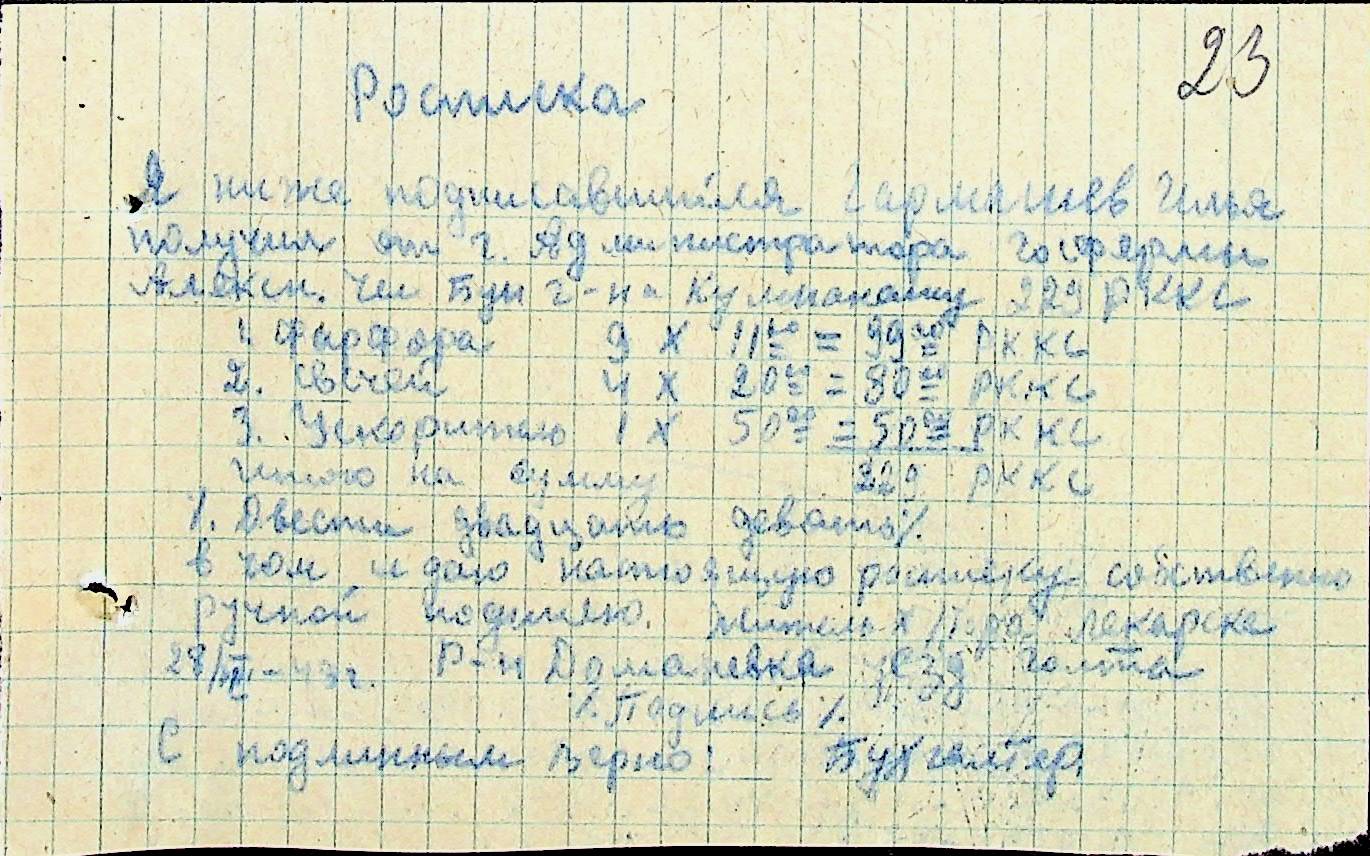 23
Росписка
Я ниже подписавшийся Гармашев Илья
получил от г. Администратора Госфермы
Алексн. Чел Бун г-на Кулманакму 229 РККС
1. Фарфора 9 х 11 00 = 99 00 РККС
2. Свечей 4 х 20 00 = 80 00 РККС
3. Ускоритель 1 х 50 00 = 50 00 РККС
итого на сумму 229 РККС
/. Двести двадцать девять/.
в чом и даю настоящую росписку собственно
ручной подписью. Житель х/
Р-н Доманевка уезд Голта
28/III-43г.
/. Подпись /.
С подлинным верно: Бухгалтер